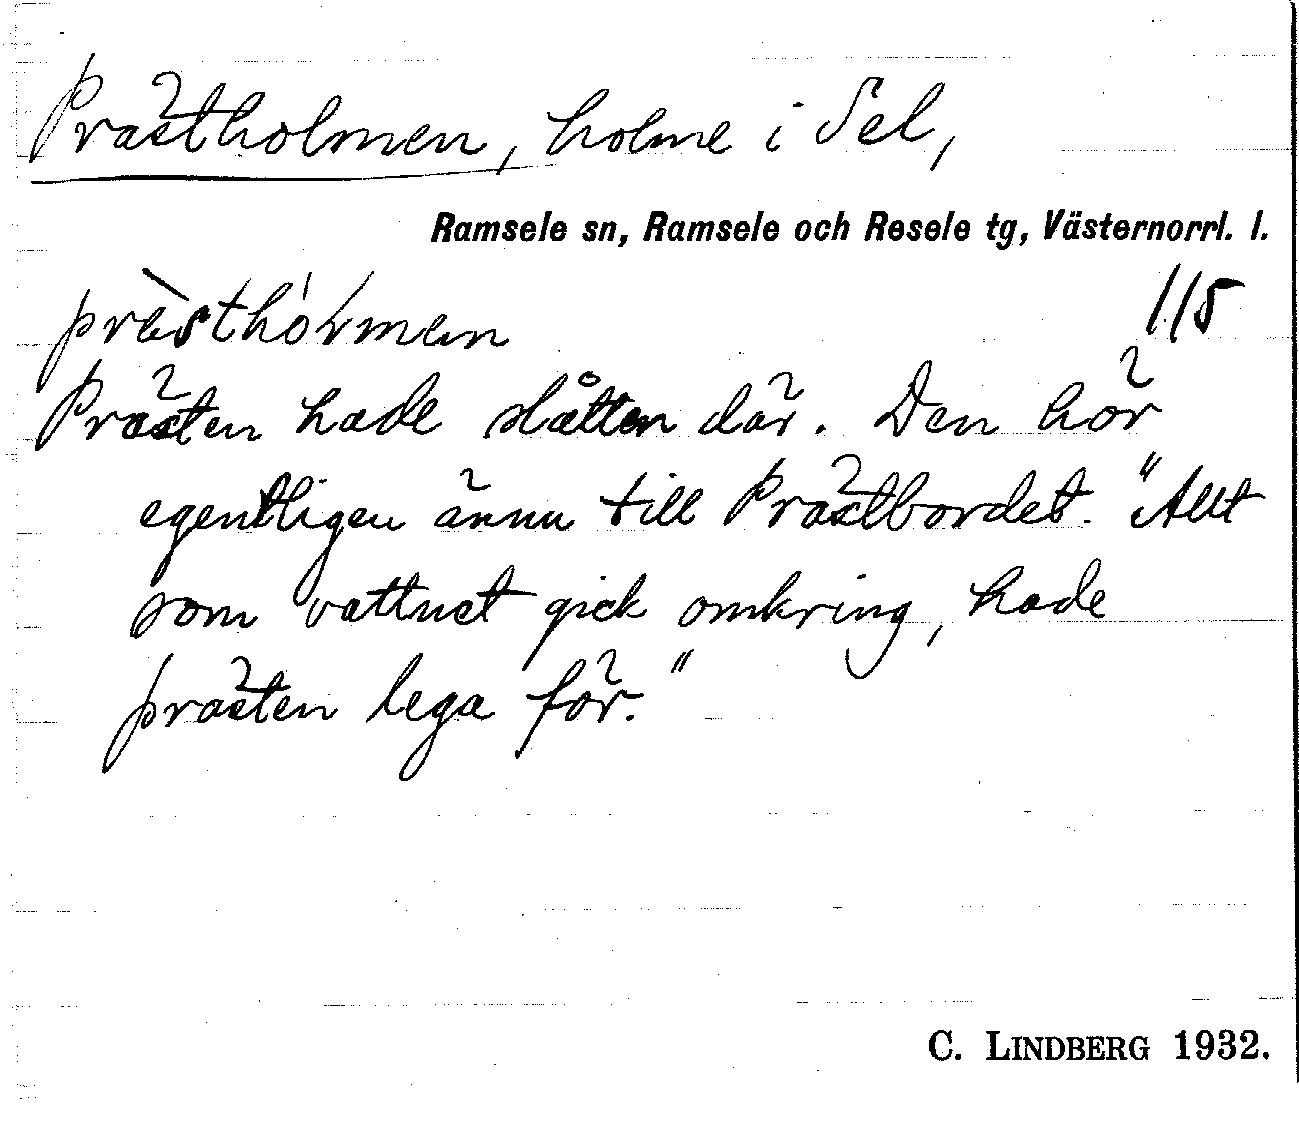 Prästholmen, holme i Sel,
Ramsele sn, Ramsele och Resele tg, Västernorrl. l.
115
Prästen hade slåtten där. Den hör
egentligen ännu till Prästbordet. "Allt
som vattnet gick omkring, hade
prästen lega för."
C. LINDBERG 1932.